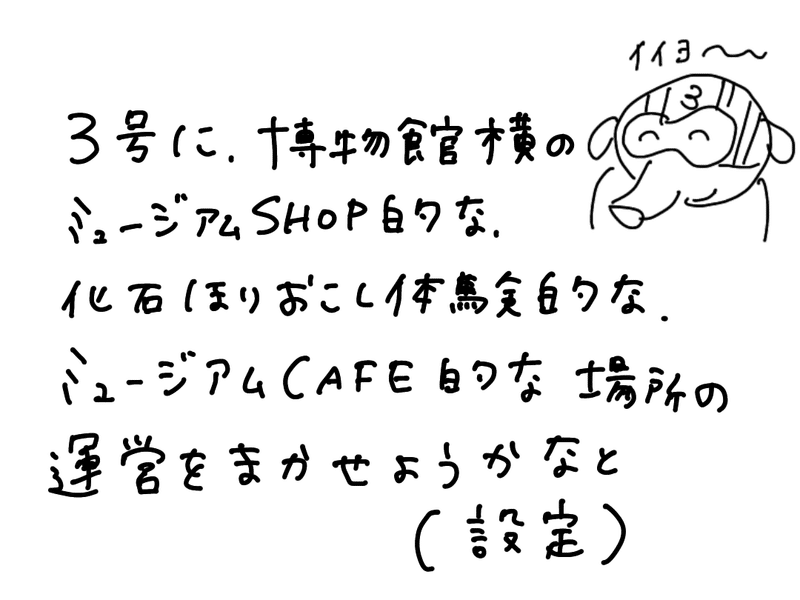 イイヨ〜〜
3
3号に、博物館横の
ミュージアムSHOP的な、
化石ほりおこし体験的な、
ミュージアムCAFE的な場所の
運営をまかせようかなと
(設定)